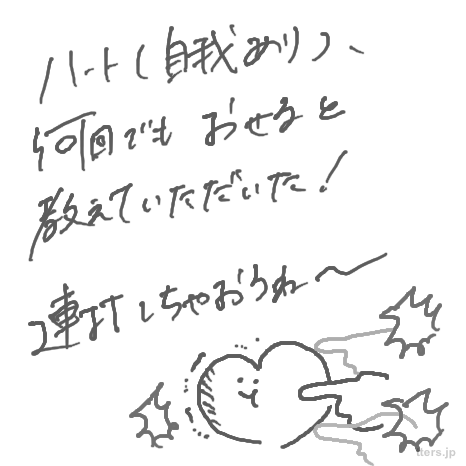 ハート(自我あり)、
何回でも おせると
教えていただいた!
連打しちゃおうね〜
tters.jp